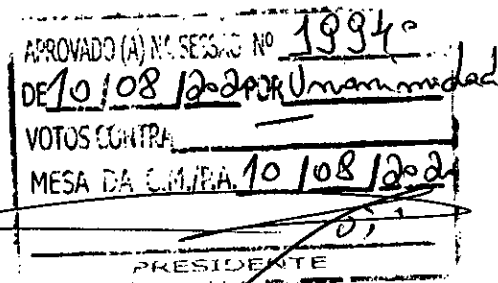 APROVADO (A) NA SESSÃO Nº 1994º
DE 10/08/202 POR Unanimidad
VOTOS CONTRA —
MESA DA C.M./P.A. 10/08/202
PRESIDENTE